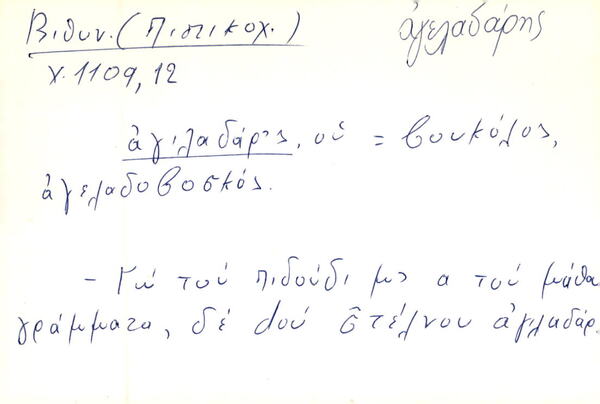 Βιθυν. (Πιστικοχ.) ἀγελαδάρης
χ. 1109, 12
ἀγιλαδάρ'ς, οὑ = βουκόλος,
ἀγελαδοβοσκός.
- Γώ τοὐ πιδούδι μ' α τοὐ μάθα
γράμματα, δέ dού στέλνου ἀγιλαδάρ.